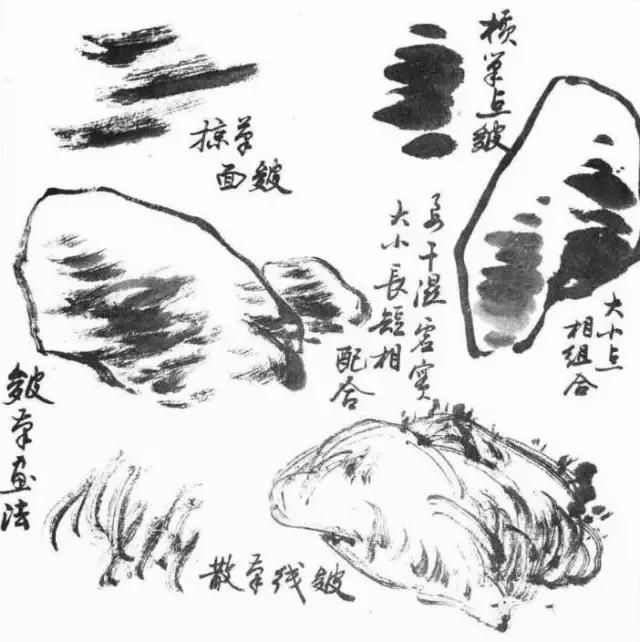 横笔点皴
掠笔
面皴
要干湿虚实
大小長短相
配合
大小点
相組合
皴笔画法
散笔线皴